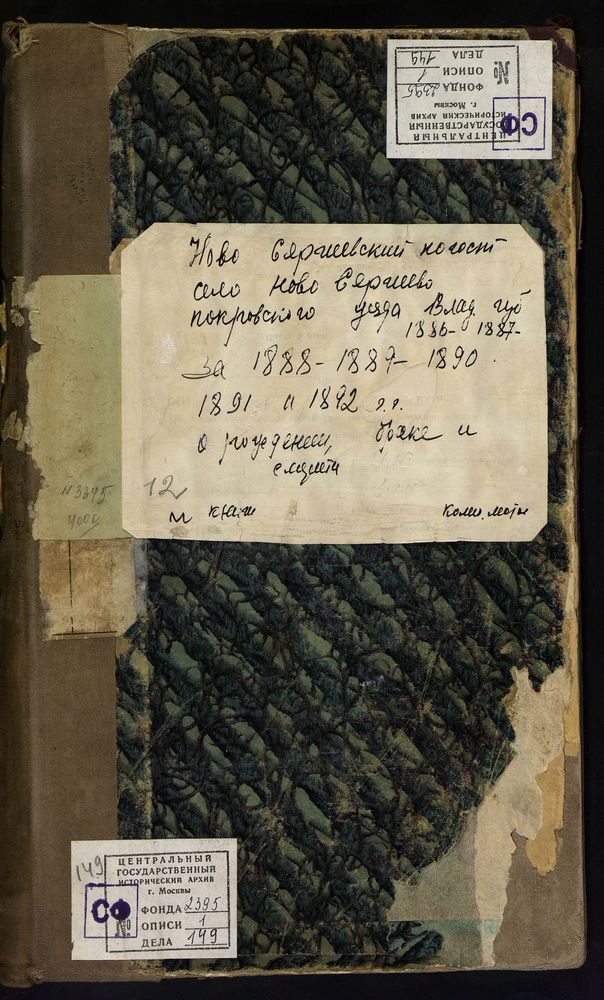 ЦЕНТРАЛЬНЫЙ
ГОСУДАРСТВЕННЫЙ
ИСТОРИЧЕСКИЙ АРХИВ
г. Москвы
ФОНДА 2395
№ ОПИСИ 1
ДЕЛА 149
СФ
Ново Сергиевский погост
село Ново Сергиево
покровского уезда Влад. губ
1886- 1887-
За 1888- 1889- 1890.
1891 и 1892 г.г.
о рождении, браке и
смерти
12
N 3395
М книги
149
ЦЕНТРАЛЬНЫЙ
ГОСУДАРСТВЕННЫЙ
ИСТОРИЧЕСКИЙ АРХИВ
г. Москвы
СФ
ФОНДА 2395
№ ОПИСИ 1
ДЕЛА 149